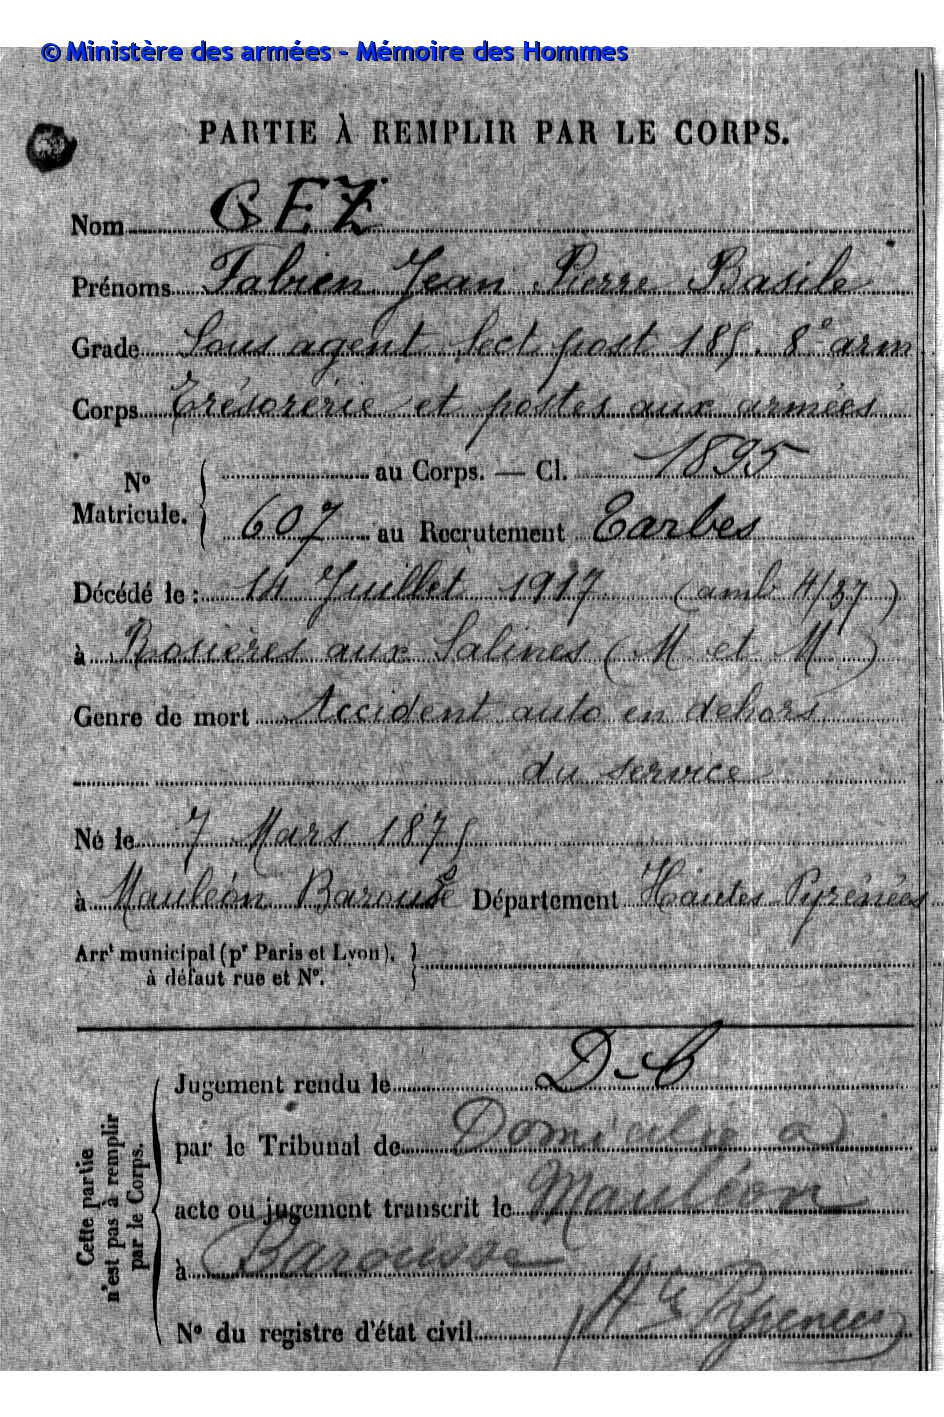 © Ministère des armées - Mémoire des Hommes
PARTIE À REMPLIR PAR LE CORPS.
Nom GEZ
Prénoms Fabien Jean Pierre Basile
Grade Sous agent Sect post 185. 8e arm
Corps Trésorerie et postes aux armées
au Corps. — Cl. 1895
No Matricule.
607 au Recrutement Tarbes
Décédé le : 14 Juillet 1917 (amb 4/37)
à Rosières aux Salines (M et M)
Genre de mort Accident auto en dehors
du service
Né le 7 Mars 1875
à Mauléon Barousse Département Hautes Pyrénées
Arrt municipal (pr Paris et Lyon),
à défaut rue et No.
Cette partie n'est pas à remplir par le Corps.
Jugement rendu le D-C
par le Tribunal de Domicilié à
acte ou jugement transcrit le Mauléon
à Barousse
No du registre d'état civil Htes Pyrenees